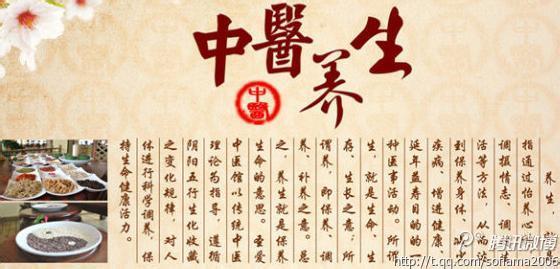 中醫养生
中醫
养生，
指通过怡养心
调摄情志、调
活等方法，从而
到保养身体、减
疾病、增进健康
延年益寿目的的
种医事活动。所谓
生，就是生命、生
存、生长之意；所
谓养，即保养、调
养、补养之意。总
之，养生就是保养
生命的意思。圣爱
中医馆以传统中医
理论为指导，遵循
阴阳五行生化收藏
之变化规律，对人
体进行科学调养，保
持生命健康活力。
腾讯微博
http://t.qq.com/sofiama2005